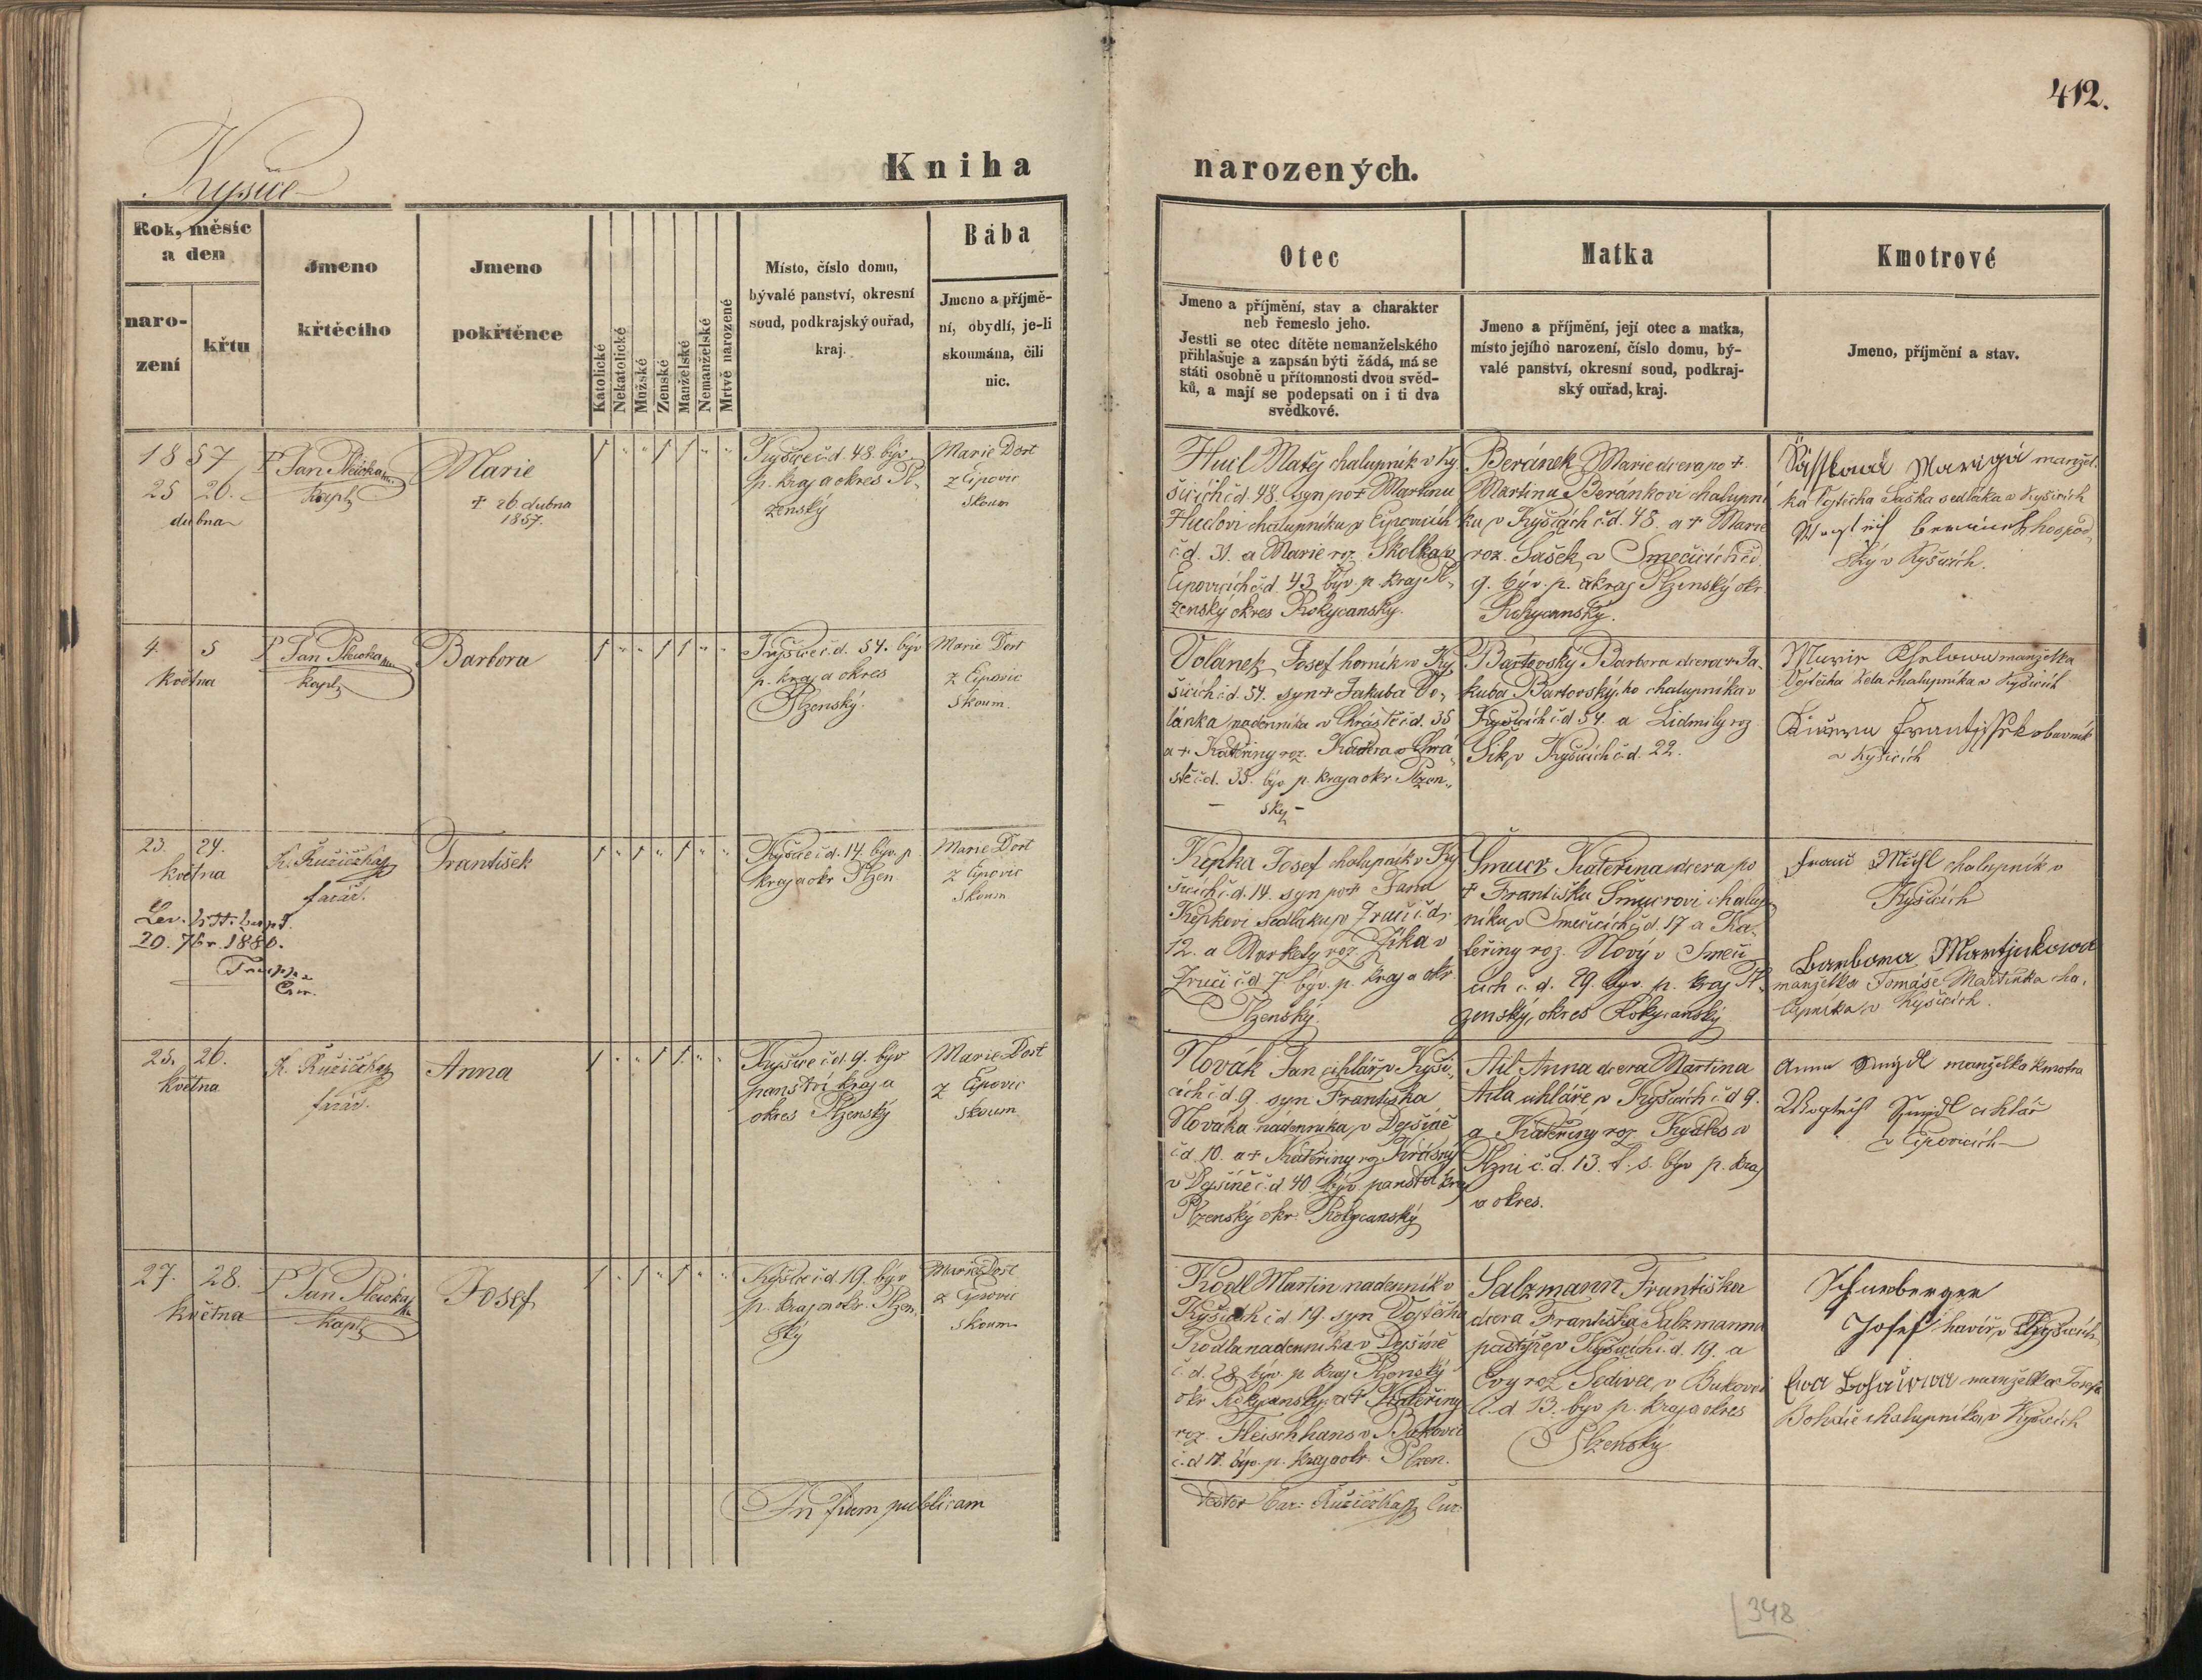 412.
Kyšice
Kniha
narozených.
Rok, měsíc
a den
naro-
zení
křtu
Jmeno
křtěcího
Jmeno
pokřtěnce
Katolické
Nekatolické
Mužské
Ženské
Manželské
Nemanželské
Mrtvě narozené
Místo, číslo domu,
bývalé panství, okresní
soud, podkrajský ouřad,
kraj.
Bába
Jmeno a příjmě-
ní, obydlí, je-li
skoumána, čili
nic.
Otec
Jmeno a příjmění, stav a charakter
neb řemeslo jeho.
Jestli se otec dítěte nemanželského
přihlašuje a zapsán býti žádá, má se
státi osobně u přítomnosti dvou svěd-
ků, a mají se podepsati on i ti dva
svědkové.
Matka
Jmeno a příjmění, její otec a matka,
místo jejího narození, číslo domu, bý-
valé panství, okresní soud, podkraj-
ský ouřad, kraj.
Kmotrové
Jmeno, příjmění a stav.
1857
25 26.
dubna
P Jan
kapl
Marie
+ 26. dubna
1857.
Kyšice č.d. 48. býv.
p. kraj a okres Pl-
zenský
Marie Dort
z Ejpovic
skoum
Huil Matěj chalupník v Ky-
šicích č.d. 48. syn po + Martinu
Huilovi chalupníku v Ejpovicích
č.d. 31. a Marie roz. Skolka v
Ejpovicích č.d. 43. býv. p. kraj Pl-
zenský okres Rokycanský.
Beránek Marie dcera po +
Martinu Beránkovi chalupní-
ku v Kyšicích č.d. 48. a + Marie
roz. Sašek v Smečicích č.d.
9. býv. p. a kraj Plzenský okr.
Rokycanský.
Marigá manžel-
ka Vojtěcha Saška sedláka v Kyšicích
hospod
ský v Kyšicích.
4. 5
května
P Jan
kapl
Barbora
Kyšice č.d. 54. býv
p. kraj a okres
Plzenský.
Marie Dort
z Ejpovic
skoum.
Volánek Josef horník v Ky-
šicích č.d. 54. syn + Jakuba Vo-
lánka nadenníka v Chrástě č.d. 35
a + Kateřiny roz. Kučera v Chrá-
stě č.d. 35. býv p. kraj a okr Plzen-
ský
Bartovský Barbora dcera + Ja-
kuba Bartovského chalupníka v
Kyšicích č.d. 54. a Lidmily roz.
Sik v Kyšicích č.d. 22.
manželka
Vojtěcha chalupníka v Kyšicích
v Kyšicích
23. 24.
května
20. 7br. 1880.
K. Ružička
farář.
František
Kyšice č.d. 14. býv. p.
kraj a okr Plzen
Marie Dort
z Ejpovic
skoum
Kepka Josef chalupník v Ky-
šicích č.d. 14. syn po + Janu
Kepkovi sedláku v Zruči č.d.
12. a Markety roz. Zíka v
Zruči č.d. 7. býv. p. kraj a okr
Plzenský.
Šmucr Kateřina dcera po
+ Františku Šmucrovi chalup-
níku v Smečicích č.d. 17 a Ka-
teřiny roz. Nový v Smeči-
cích č.d. 29. býv. p. kraj Pl-
zenský, okres Rokycanský
chalupník v
Kyšicích
Barbora Martjnkowa
manželka Tomáše Martínka cha-
lupníka v Kyšicích.
25. 26.
května
K. Ružička
farář.
Anna
Kyšice č.d. 9. býv
panství kraj a
okres Plzenský
Marie Dort
z Ejpovic
skoum
Novák Jan cihlář v Kyši-
cích č.d. 9. syn Františka
Nováka nádenníka v Dejšině
č.d. 10. a + Kateřiny roz. Krásný
v Dejšině č.d. 40. býv panství kraj
Plzenský okr. Rokycanský
Ail Anna dcera Martina
Aila uhláře v Kyšicích č.d. 9.
a Kateřiny roz.
Plzni č.d. 13. býv p. kraj
a okres.
Anna Šmejdl manželka kmotra
Wogtěch Šmejdl cihlář
v Ejpovicích
27. 28.
května
P Jan
kapl
Josef
Kyšice č.d. 19. býv
p. kraj a okr. Plzen-
ský
Marie Dort
z Ejpovic
skoum
Kodl Martin nadenník v
Kyšicích č.d. 19. syn Vojtěcha
Kodla nadenníka v Dejšině
č.d. 28 býv. p kraj Plzenský
okr Rokycanský a + Kateřiny
roz. Fleischhans v Bukovci
č.d 17. býv. p. kraj a okr. Plzen.
Salzmann Františka
dcera Františka Salzmanna
pastýře v Kyšicích č.d. 19. a
Evy roz. Šedivec v Bukovci
č.d 13. býv p. kraj a okres
Plzenský
Josef havíř v Kyšicích
Ewa manželka Josefa
Boháče chalupníka v Kyšicích
In fidem publicam
Testor Car. Ružička Cur.
348